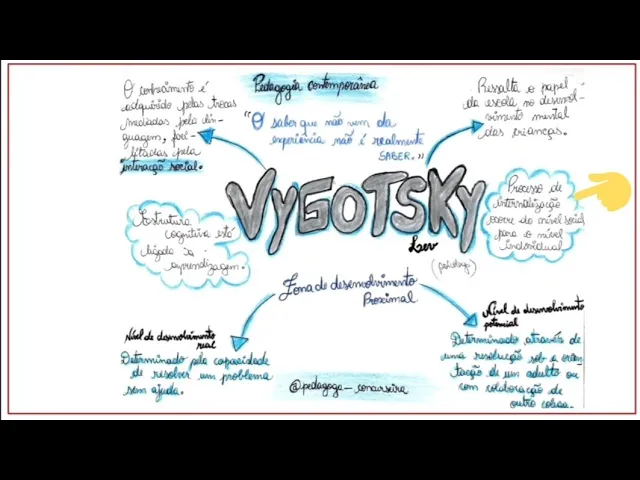 Pedagogia contemporânea
O conhecimento é
adquirido pelas trocas
mediadas pela lin-
guagem, faci-
litadas pela
interação social.
"O saber que não vem da
experiência não é realmente
SABER."
Ressalta o papel
da escola no desenvol-
vimento mental
das crianças.
VYGOTSKY
Lev
(psicólogo)
Estrutura
cognitiva está
ligada à
aprendizagem.
Processo de
internalização
ocorre do nível social
para o nível
individual
Zona de desenvolvimento
Proximal
Nível de desenvolvimento
real
Determinado pela capacidade
de resolver um problema
sem ajuda.
Nível de desenvolvimento
potencial
Determinado através de
uma resolução sob a orien-
tação de um adulto ou
com colaboração de
outro colega.
@pedagoga_concurseira